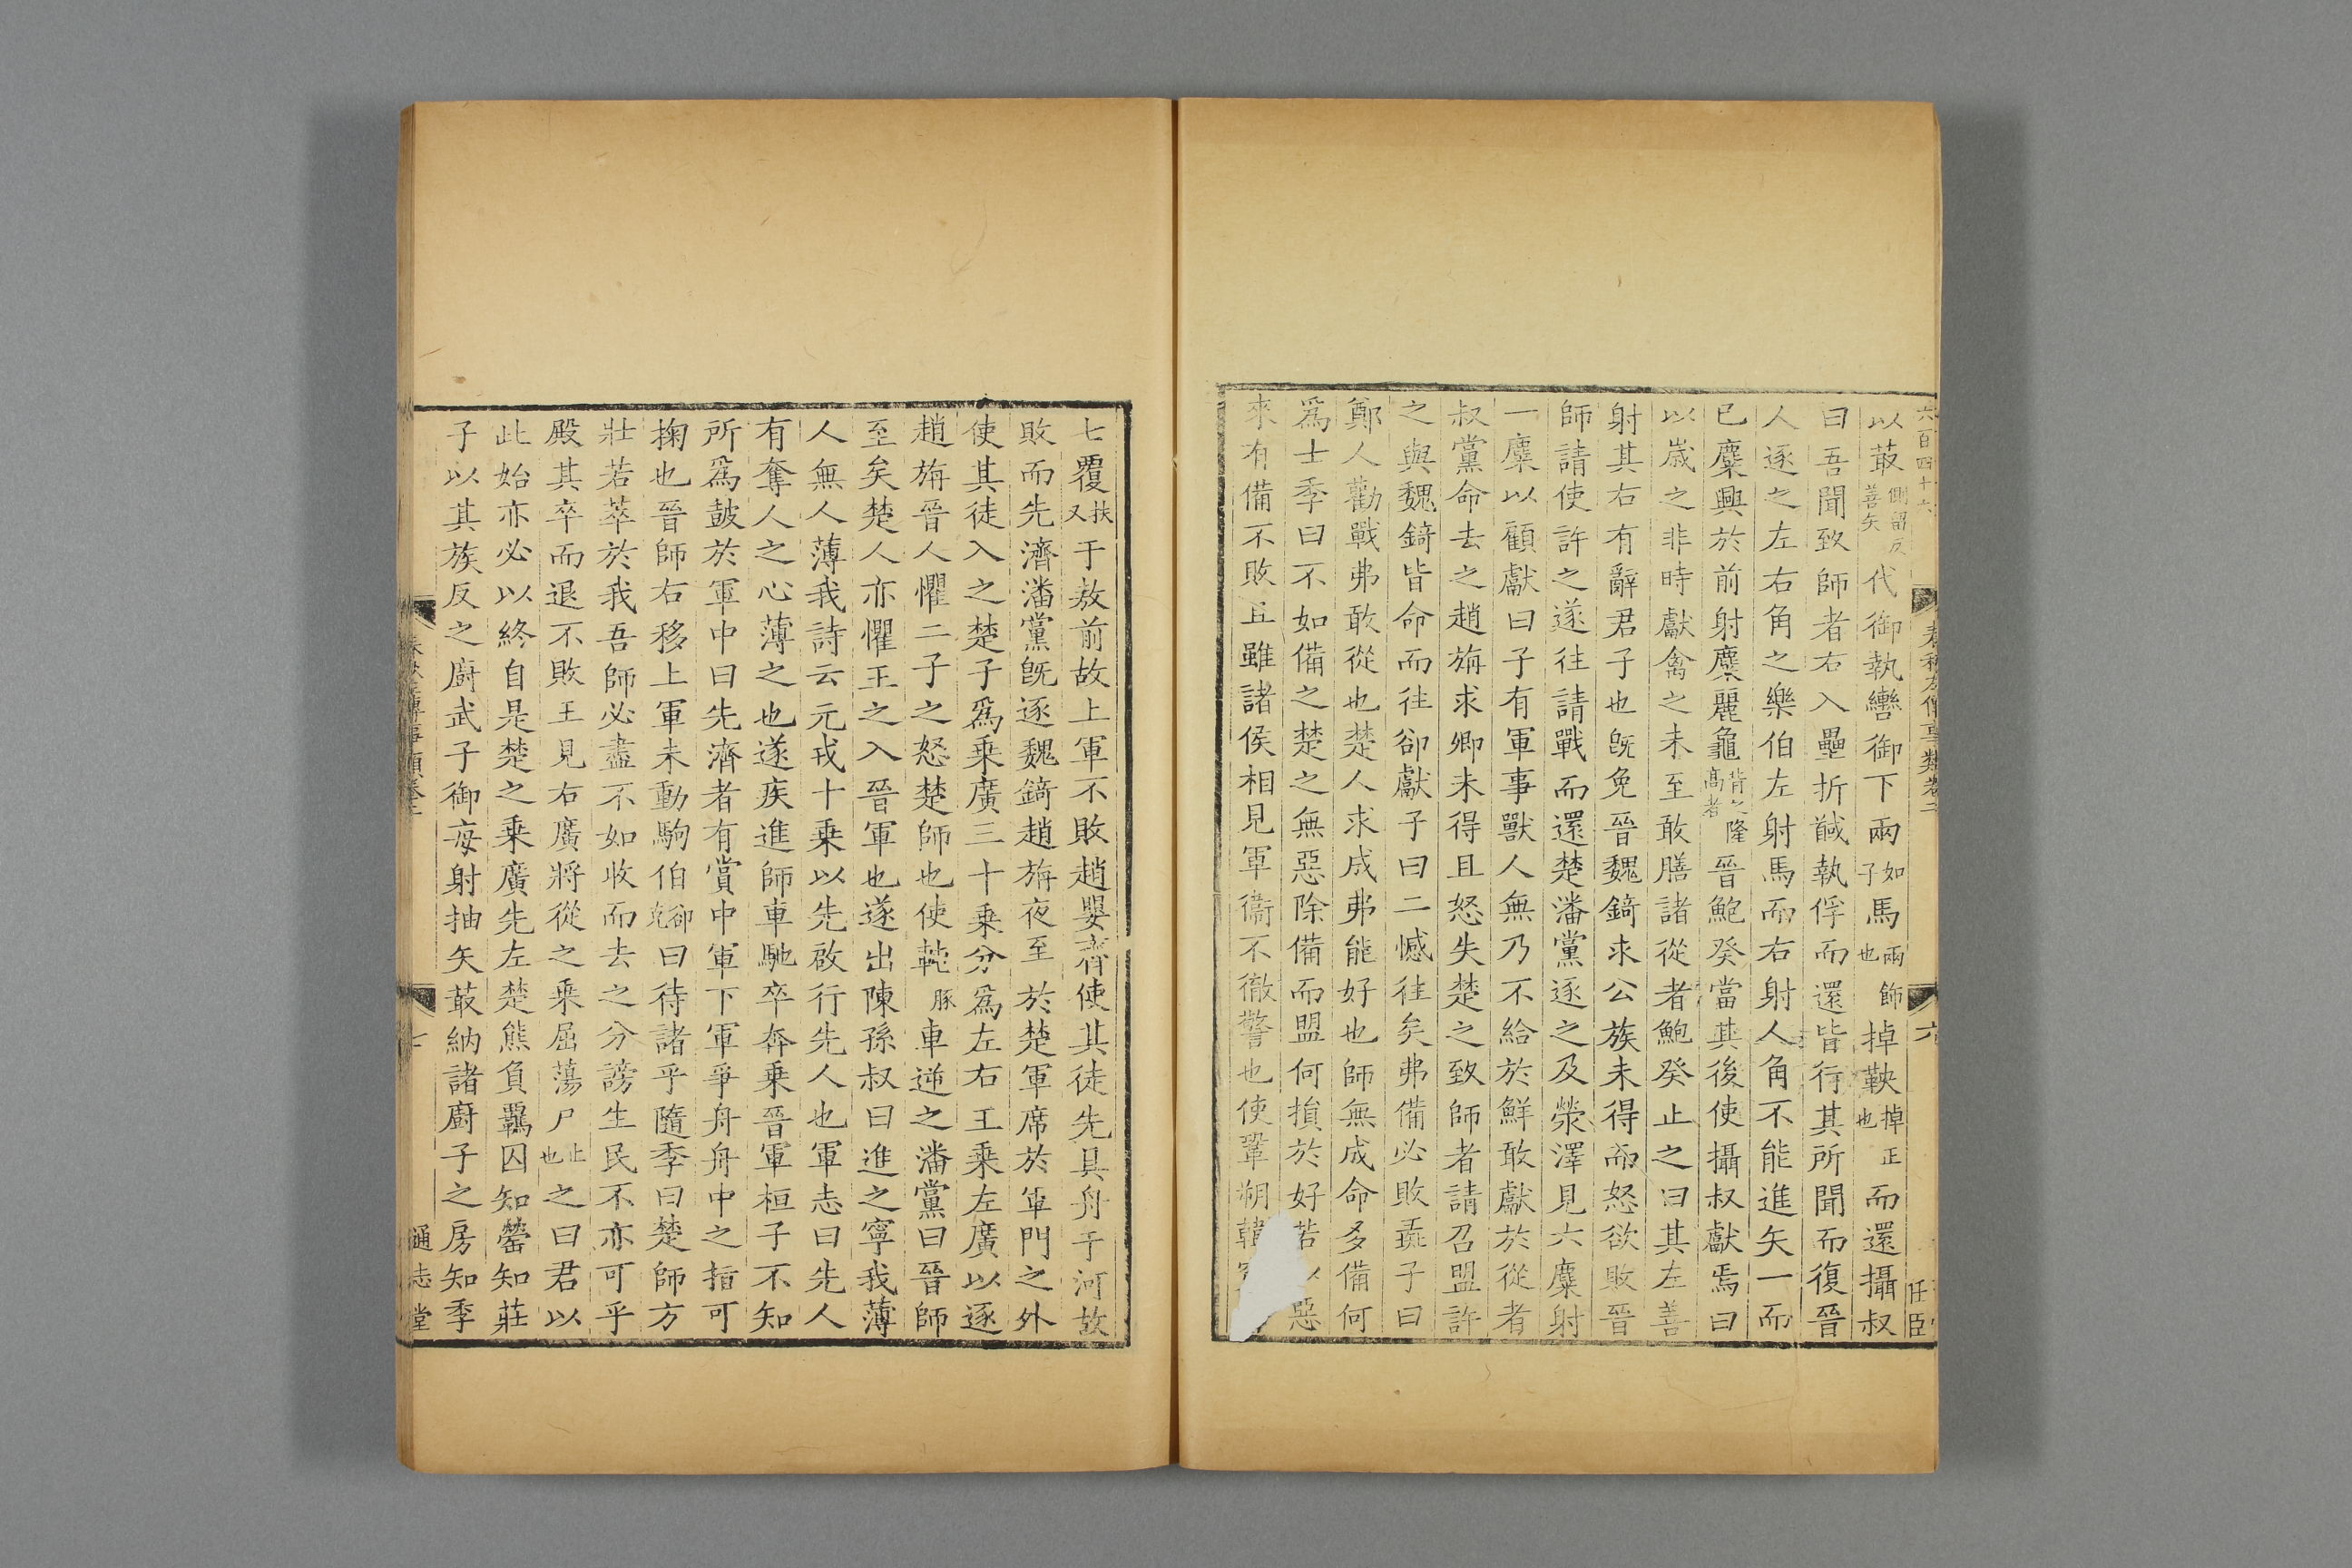 六百四十六 春秋左傳事類卷二 六 任臣
以菆側留反善矢代御執轡御下兩如子馬兩飾也掉鞅掉正也而還攝叔
曰吾聞致師者右入壘折馘執俘而還皆行其所聞而復晉
人逐之左右角之樂伯左射馬而右射人角不能進矢一而
已麋興於前射麋麗龜背之隆高者晉鮑癸當其後使攝叔獻焉曰
以歲之非時獻禽之未至敢膳諸從者鮑癸止之曰其左善
射其右有辭君子也旣免晉魏錡求公族未得而怒欲敗晉
師請使許之遂往請戰而還楚潘黨逐之及滎澤見六麋射
一麋以顧獻曰子有軍事獸人無乃不給於鮮敢獻於從者
叔黨命去之趙旃求卿未得且怒失楚之致師者請召盟許
之與魏錡皆命而往卻獻子曰二憾徃矣弗備必敗彘子曰
鄭人勸戰弗敢從也楚人求成弗能好也師無成命多備何
爲士季曰不如備之楚之無惡除備而盟何損於好若以惡
來有備不敗且雖諸侯相見軍衞不徹警也使鞏朔韓
七覆扶又于敖前故上軍不敗趙嬰齊使其徒先具舟于河故
敗而先濟潘黨旣逐魏錡趙旃夜至於楚軍席於軍門之外
使其徒入之楚子爲乗廣三十乗分爲左右王乗左廣以逐
趙旃晉人懼二子之怒楚師也使軘豚車逆之潘黨曰晉師
至矣楚人亦懼王之入晉軍也遂出陳孫叔曰進之寧我薄
人無人薄我詩云元戎十乗以先啟行先人也軍志曰先人
有奪人之心薄之也遂疾進師車馳卒奔乗晉軍桓子不知
所爲鼓於軍中曰先濟者有賞中軍下軍爭舟舟中之指可
掬也晉師右移上軍未動駒伯卻克曰待諸乎隨季曰楚師方
壯若萃於我吾師必盡不如收而去之分謗生民不亦可乎
殿其卒而退不敗王見右廣將從之乗屈蕩尸止也之曰君以
此始亦必以終自是楚之乗廣先左楚熊負羈囚知罃知莊
子以其族反之廚武子御每射抽矢菆納諸廚子之房知季
春秋左傳事類卷二 七 通志堂